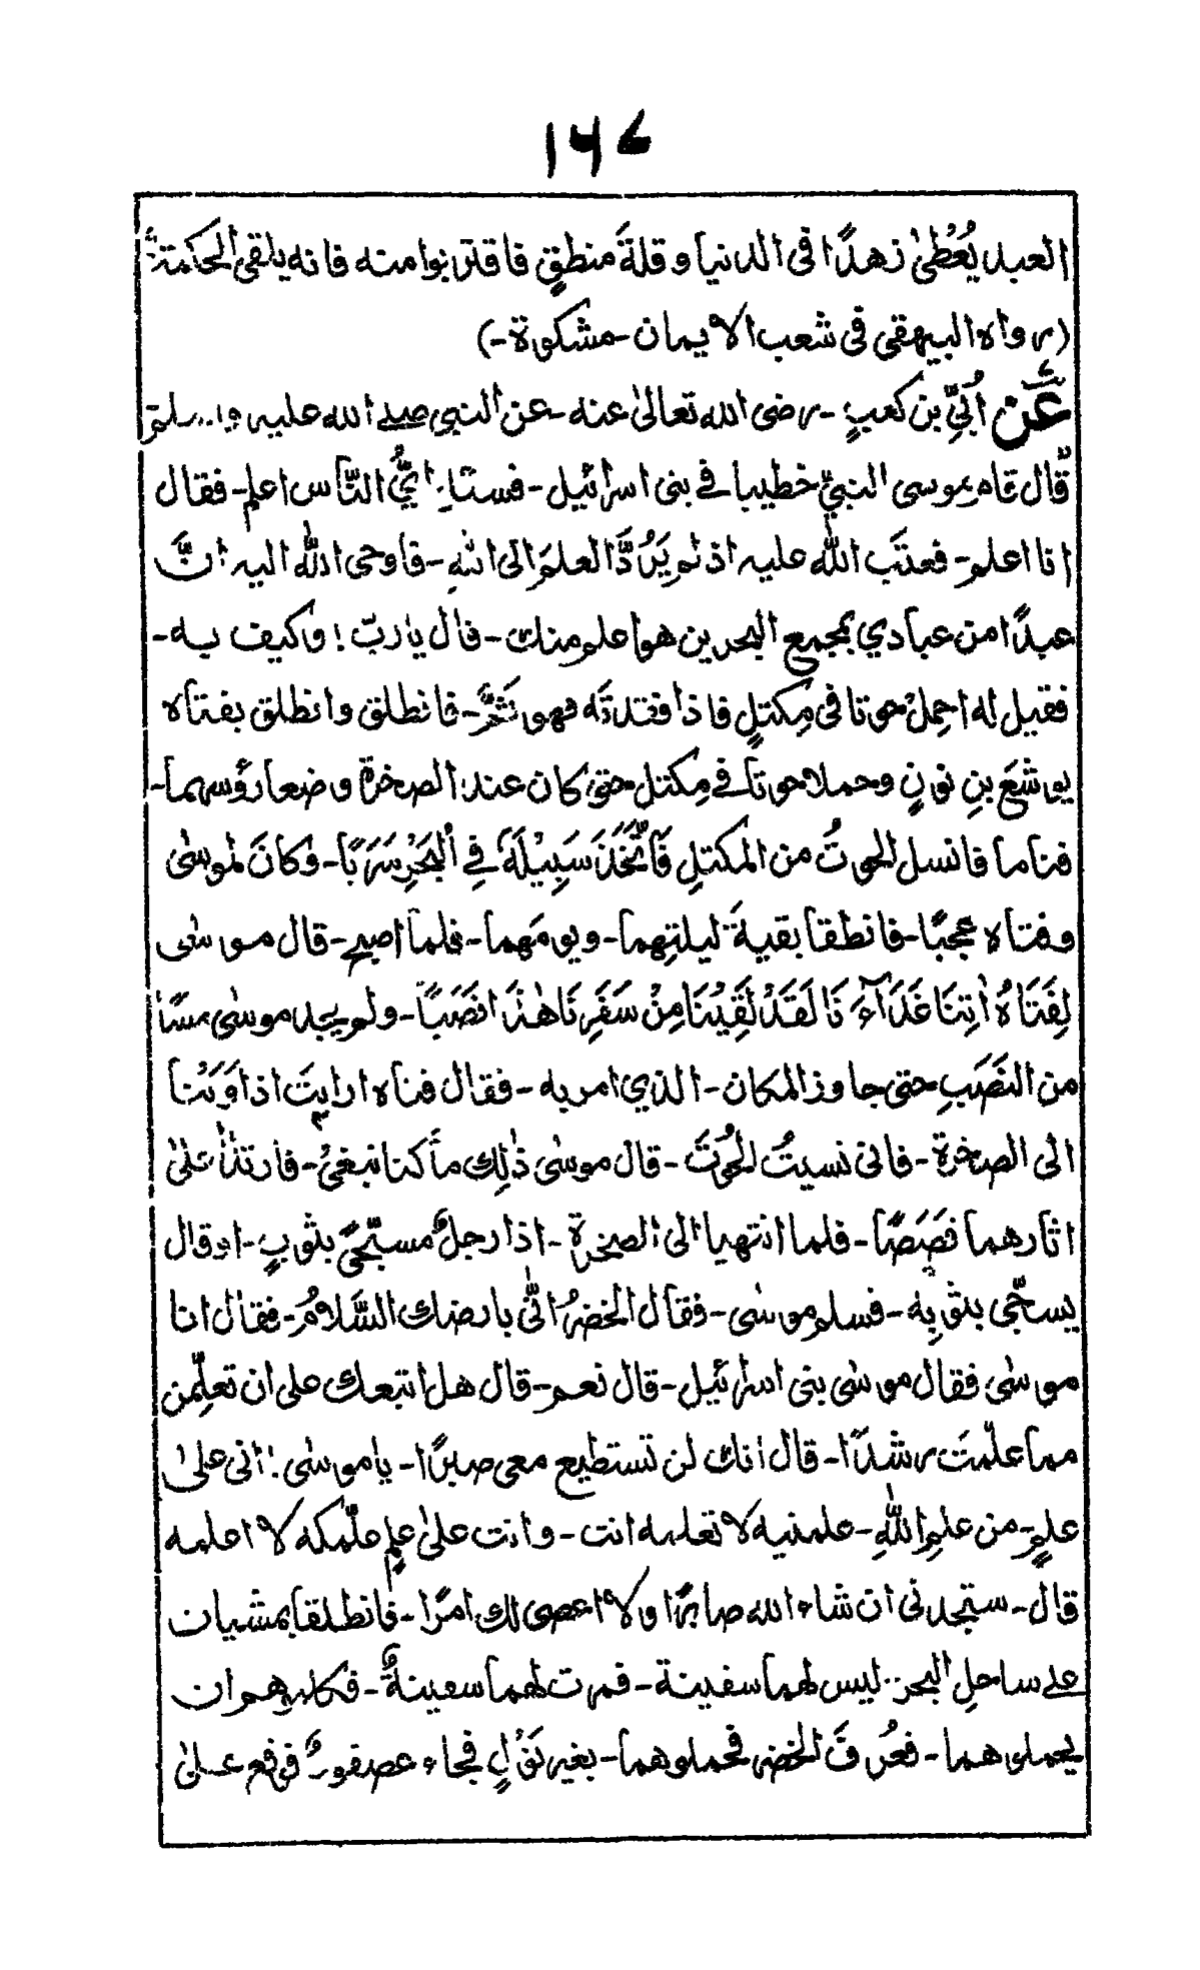 ۱۶۷
العبد يُعْطٰى زهدًا فى الدنيا و قلةَ منطقٍ فاقتربوا منه فانه يلقى الحكمة
(رواه البيهقى فى شعب الايمان - مشكوة -)
عَن أُبَيِّ بن كعبٍ - رضى الله تعالىٰ عنه - عن النبى صلے الله عليه و سلم
قَال قام موسى النبيُّ خطيبا فے بنى اسرائيل - فسئل أيُّ النَّاس اعلم - فقال
انا اعلم - فعتَب اللّٰه عليه اذ لم يَرُدَّ العلمَ الى اللّٰهِ - فاوحى اللّٰه اليه انَّ
عبدًا من عبادي بمجمع البحرين هو اعلم منك - قال يا ربّ ! وكيف به -
فقيل له احمِلْ حوتا فى مِكتلٍ فاذا فقدتَّه فهو ثَمَّ - فانطلق وانطلق بفتاه
يوشَعَ بنِ نونٍ و حملا حوتا فے مِكتل حتىٰ كان عند الصخرة وضعا رؤسهما -
فناما فانسل الحوتُ من المكتلِ فَاتَّخَذَ سَبِيْلَهٗ فِے الْبَحْرِ سَرَبًا - وكانَ لموسٰى
وفتاه عجبًا - فانطلقا بقيةَ ليلتِهما - ويومَهما - فلما اصبح - قال موسٰى
لِفَتَاهُ اٰتِنَا غَدَآءَ نَا لَقَدْ لَقِيْنَا مِنْ سَفَرِنَا هٰذَا نَصَبًا - ولم يجد موسٰى مسًّا
من النَصَبِ حتى جاوز المكان - الذي امر به - فقال فتاه ارايتَ اذ اَوَيْنا
الى الصخرة - فانى نسيتُ الحُوْتَ - قال موسٰى ذٰلِك ما كنا نبغىْ - فارتدّا علىٰ
اثارهما قَصَصًا - فلما انتهيا الى الصخرة - اذا رجلٌ مسجًّى بثوبٍ - او قال
يسجّى بثوبِه - فسلم موسٰى - فقال الخضرُ انّٰى بارضك السَّلامُ - فقال انا
موسٰى فقال موسٰى بنى اسرائيل - قال نعم - قال هل اتبعك على ان تعلِّمن
مما علّمتَ رشدًا - قال انك لن تستطيع معى صابرًا - يا موسٰى ! انى علىٰ
علمٍ - من علمِ اللّٰهِ - علمنيه لا تعلمه انت - وانت علىٰ علمٍ علّمكه لا اعلمه
قال - ستجدنى ان شاء الله صابرًا ولا اعصى لك امرًا - فانطلقا يمشيان
علے ساحلِ البحر ليس لهما سفينة - فمرت لهما سفينةٌ - فكلموهم ان
يحملوهما - فعُرِفَ الخضر فحملوهما - بغير نَوْلٍ فجاء عصفورٌ فوقع علىٰ